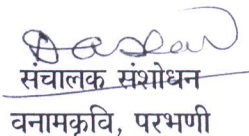 संचालक संशोधन
वनामकृवि, परभणी